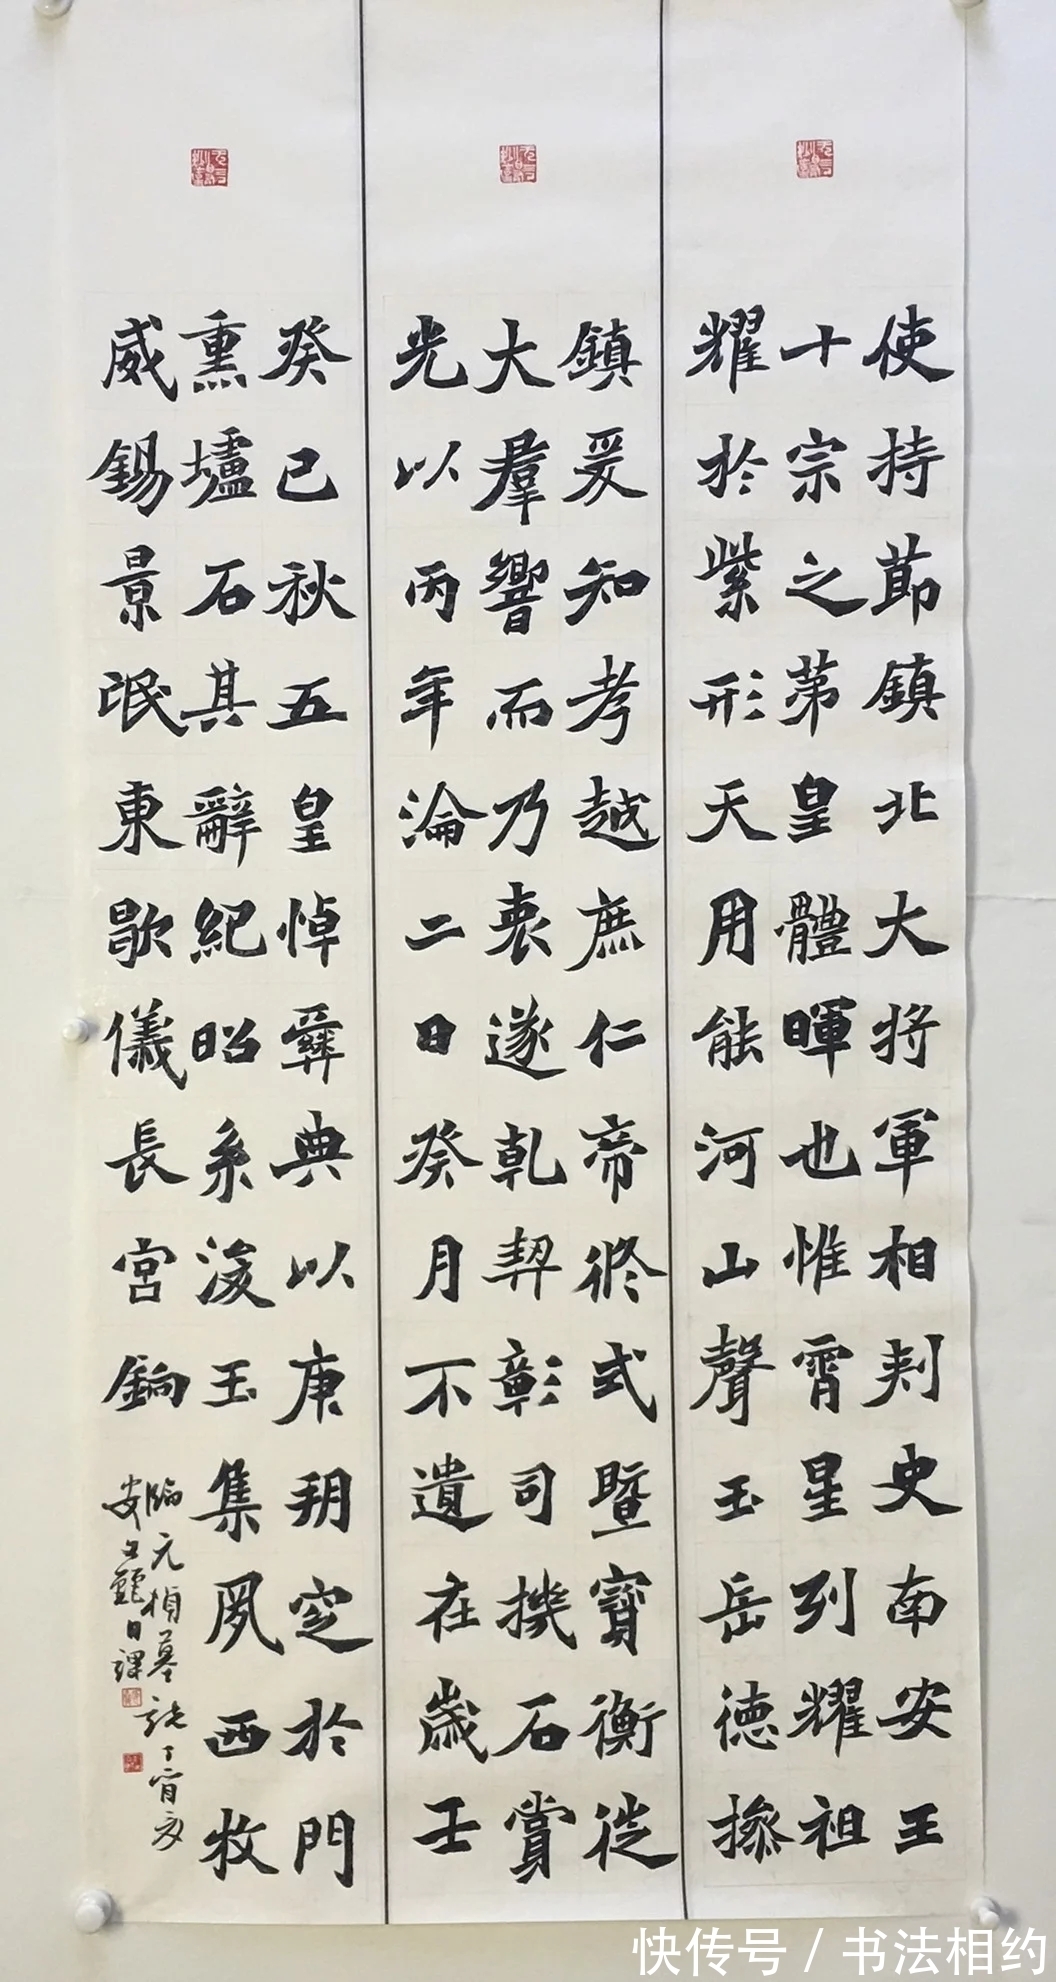 使持節鎮北大將軍相刾史南安王
十宗之苐皇體暉也惟霄星列耀祖
耀於紫形天用能河山聲玉岳德摻
鎮爰知孝越庶仁帝終式暨寶衡徙
大羣響而乃喪遂乾契彰司機石賞
光以丙年淪二日癸月不遺在歲壬
癸已秋五皇悼彝典以庚朔窆於門
熏壚石其辭紀昭系浚玉集夙西牧
威錫景泯東歇儀長宮銅
臨元楨墓誌丁酉
日課
快传号 / 书法相约